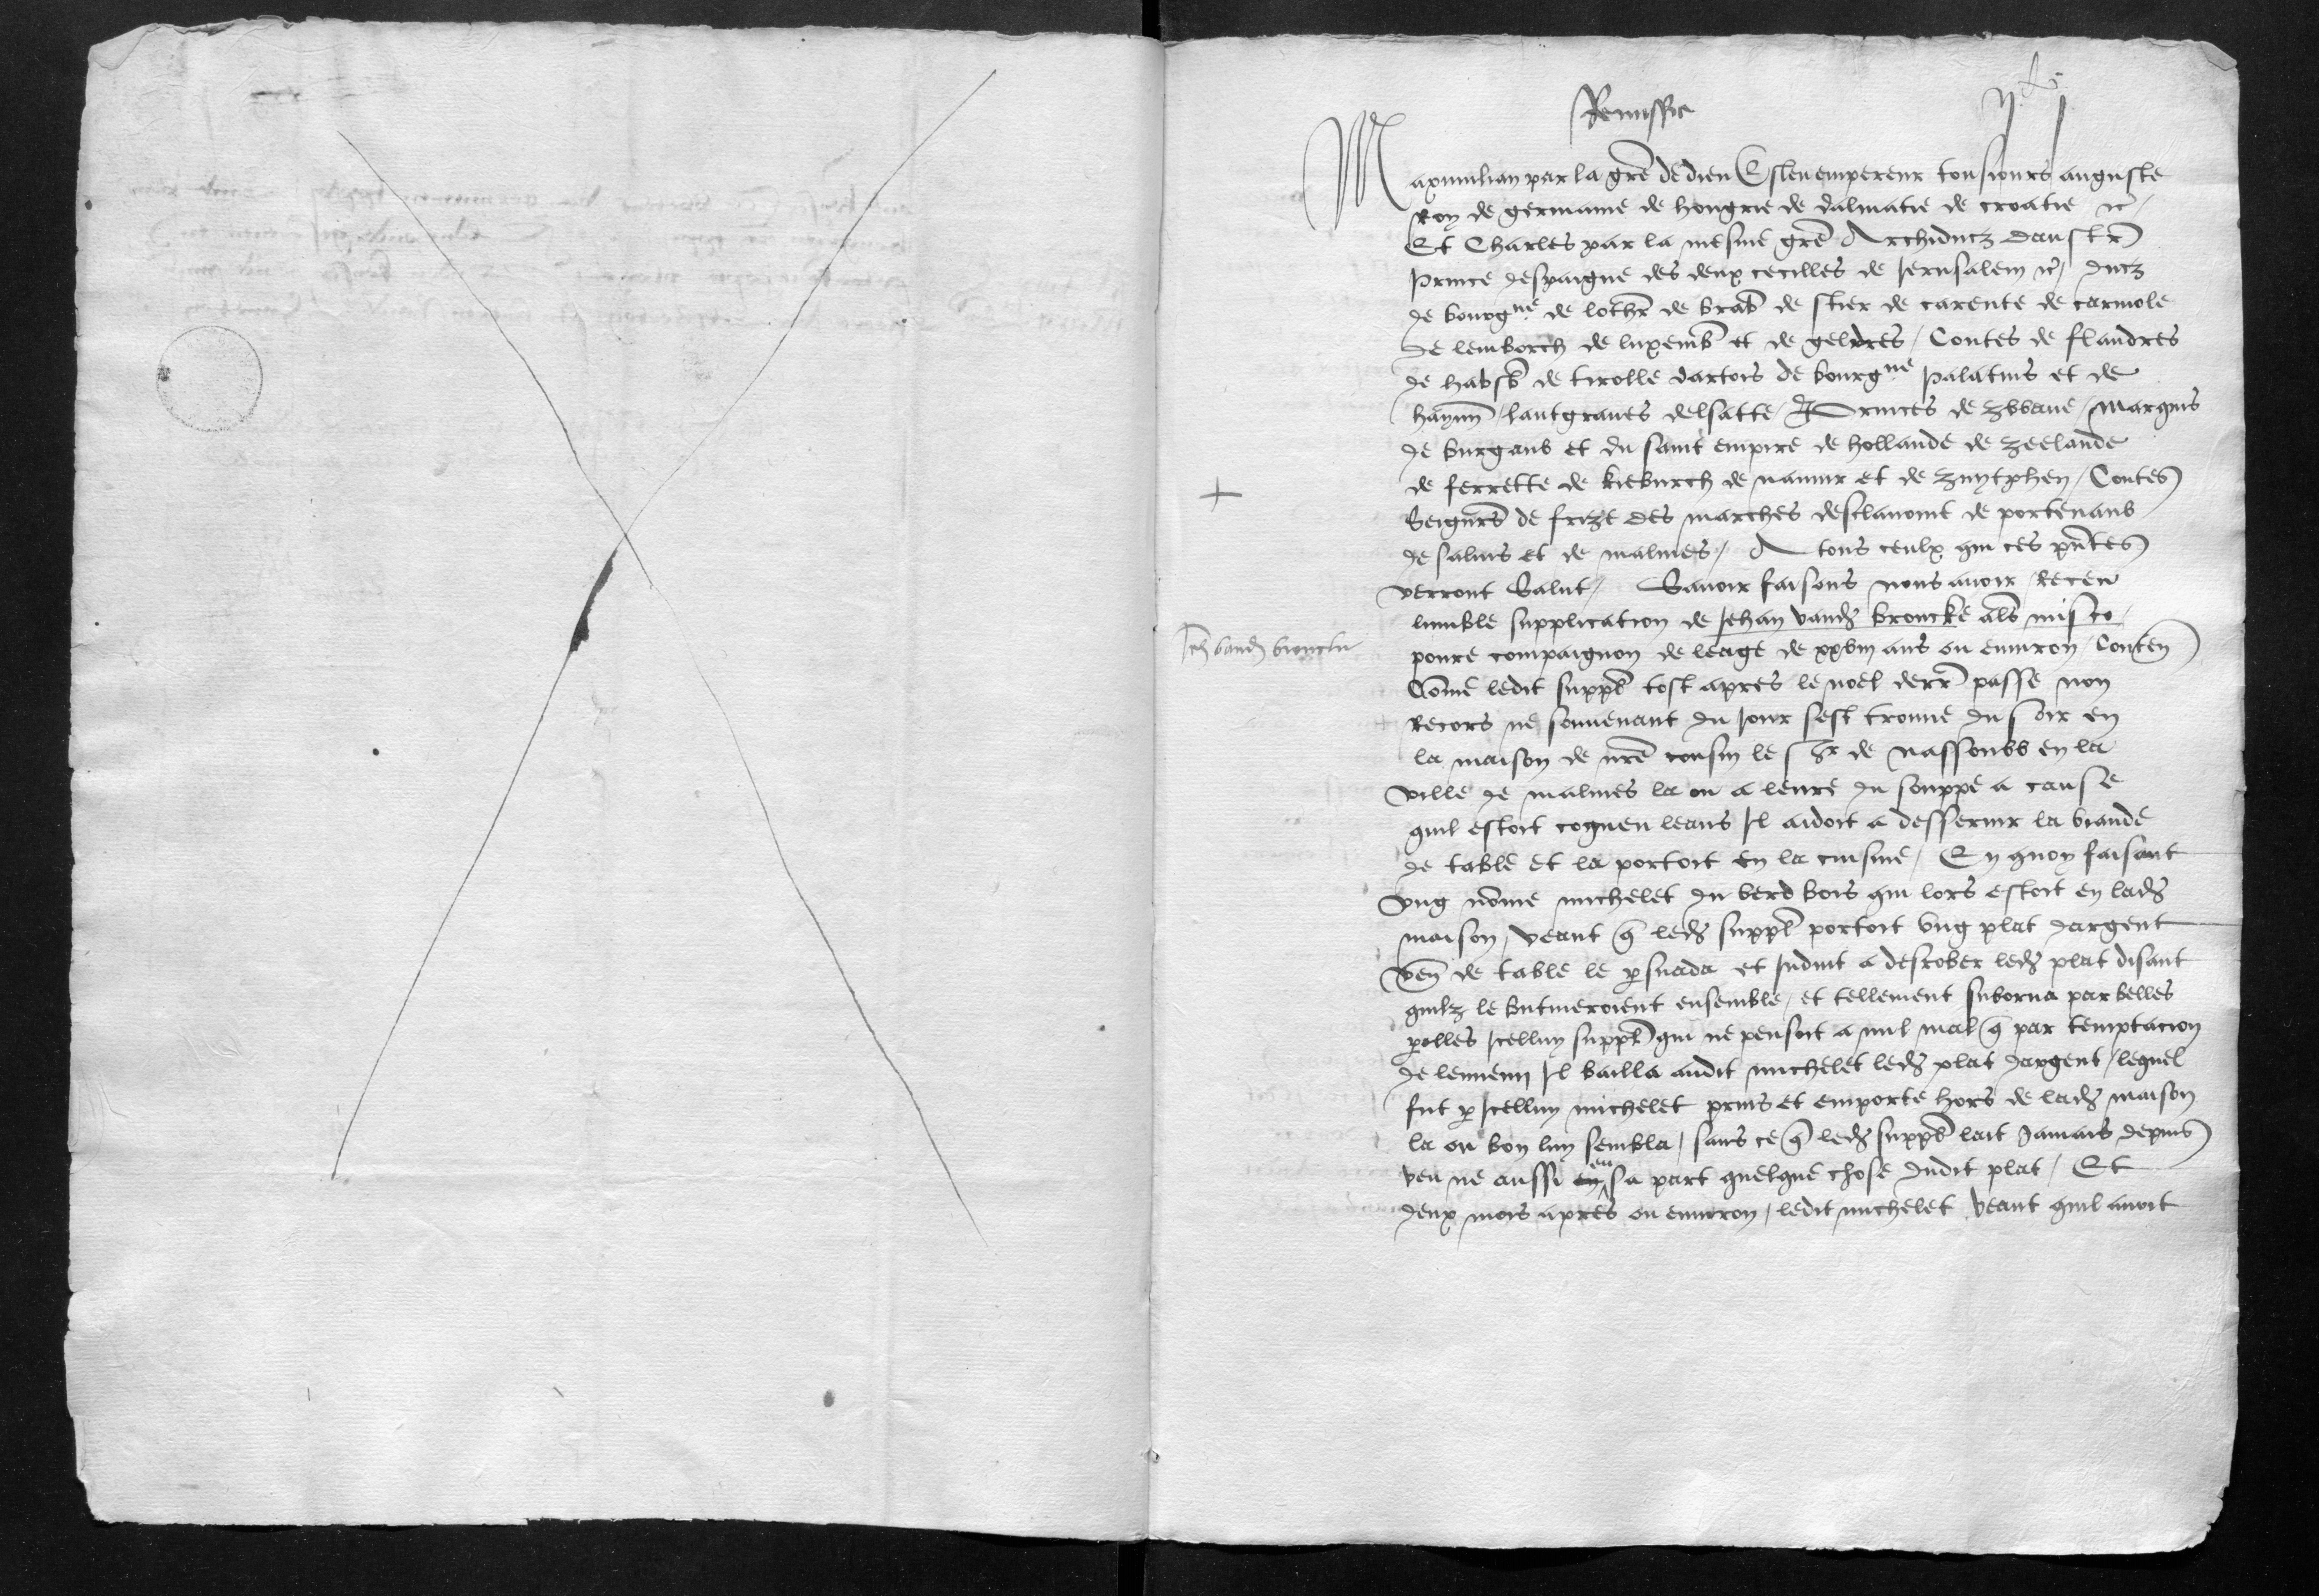 Remissio
Maximilian par la gre de dieu Esleu empereur tousiours auguste
Roy de germanie de hongrie de dalmatie de croatie &c
Et Charles par la mesme gre Archiducz daustr
Prince despaigne des deux cecilles de Jerusalem &c ducz
de bourgne de lothr de brab de stier de carente de carniole
de lemborch de luxemb et de geldres / Contes de flandres
de habsb de tirolle dartois de bourgne palatins et de
haynn / lantgraues delsatte / Princes de zwaue / marquis
de burgaub et du saint empire de hollande de zeelande
de ferrette de kieburch de namur et de zuytphen / Contes
Seigneurs de frize des marches desclauonie de portenaub
de salins et de malines / A tous ceulx qui ces pntes
verront Salut / Sauoir faisons nous auoir Receu
lumble supplication de Jehan vand broncke als misco
poure compaignon de leage de xxviij ans ou enuiron / Conten
Come ledit suppl tost apres le noel derr passe non
Recors ne souuenant du Jour sest trouue du soir en
la maison de nre cousin le sgr de nassoubb en la
ville de malines la ou a leure du souppe a cause
quil estoit cogneu leans Il aidoit a desseruir la viande
de table et la portoit en la cuisine / En quoy faisant
vng nomme michelet du verd bois qui lors estoit en lad
maison / veant q led suppl portoit vng plat dargent
ven de table le psuada et Induit a desrober led plat disant
quilz le butineroient ensemble / et tellement suborna par belles
polles Icelluy suppl qui ne pensoit a nul mal q par temptacion
de lennemy Il bailla audit michelet led plat dargent / lequel
fut p Icelluy michelet prins et emporte hors de lad maison
la ou bon luy sembla / sans ce q led suppl lait Jamais depuis
veu ne aussi eu sa part quelque chose dudit plat / Et
deux mois apres ou enuiron / ledit michelet veant quil auoit
+
Jeh vand broncke